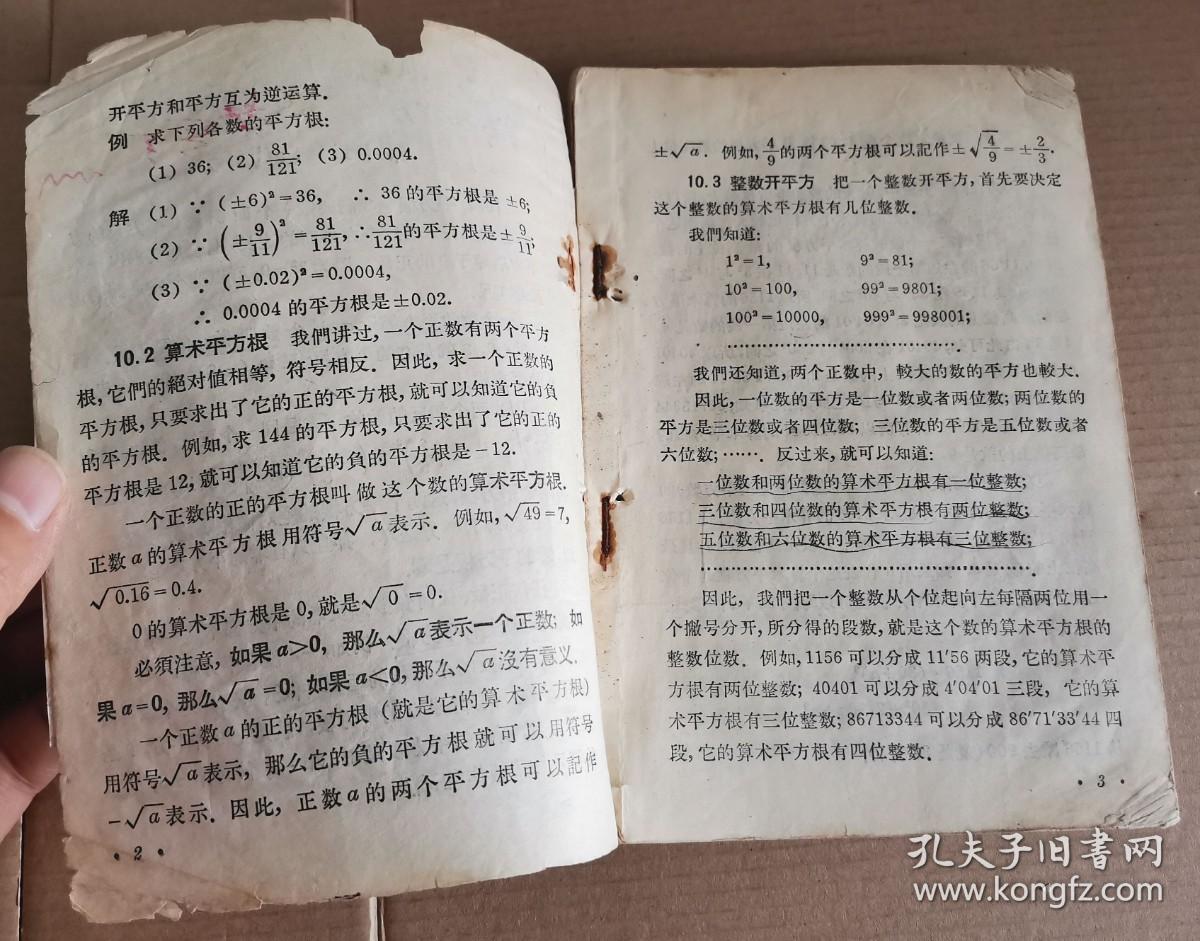 开平方和平方互为逆运算.
例 求下列各数的平方根:
(1) 36; (2) 81/121; (3) 0.0004.
解 (1) ∵ (±6)²=36, ∴ 36 的平方根是 ±6;
(2) ∵ (±9/11)²=81/121, ∴81/121的平方根是±9/11;
(3) ∵ (±0.02)²=0.0004,
∴ 0.0004 的平方根是±0.02.
10.2 算术平方根 我們讲过, 一个正数有两个平方
根, 它們的絕对值相等, 符号相反. 因此, 求一个正数的
平方根, 只要求出了它的正的平方根, 就可以知道它的負
的平方根. 例如, 求 144 的平方根, 只要求出了它的正的
平方根是 12, 就可以知道它的負的平方根是 -12.
一个正数的正的平方根叫做这个数的算术平方根.
正数 a 的算术平方根用符号√a 表示. 例如, √49=7,
√0.16=0.4.
0 的算术平方根是 0, 就是√0=0.
必須注意, 如果 a>0, 那么√a 表示一个正数; 如
果 a=0, 那么√a=0; 如果 a<0, 那么√a 沒有意义.
一个正数 a 的正的平方根 (就是它的算术平方根)
用符号√a 表示, 那么它的負的平方根就可以用符号
-√a 表示. 因此, 正数 a 的两个平方根可以記作
· 2 ·
±√a. 例如, 4/9的两个平方根可以記作±√4/9=±2/3.
10.3 整数开平方 把一个整数开平方, 首先要决定
这个整数的算术平方根有几位整数.
我們知道:
1²=1, 9²=81;
10²=100, 99²=9801;
100²=10000, 999²=998001;
…………………………………….
我們还知道, 两个正数中, 較大的数的平方也較大.
因此, 一位数的平方是一位数或者两位数; 两位数的
平方是三位数或者四位数; 三位数的平方是五位数或者
六位数; ……. 反过来, 就可以知道:
一位数和两位数的算术平方根有一位整数;
三位数和四位数的算术平方根有两位整数;
五位数和六位数的算术平方根有三位整数;
…………………………………………………….
因此, 我們把一个整数从个位起向左每隔两位用一
个撇号分开, 所分得的段数, 就是这个数的算术平方根的
整数位数. 例如, 1156 可以分成 11′56 两段, 它的算术平
方根有两位整数; 40401 可以分成 4′04′01 三段, 它的算
术平方根有三位整数; 86713344 可以分成 86′71′33′44 四
段, 它的算术平方根有四位整数.
· 3 ·
孔夫子旧书网
www.kongfz.com